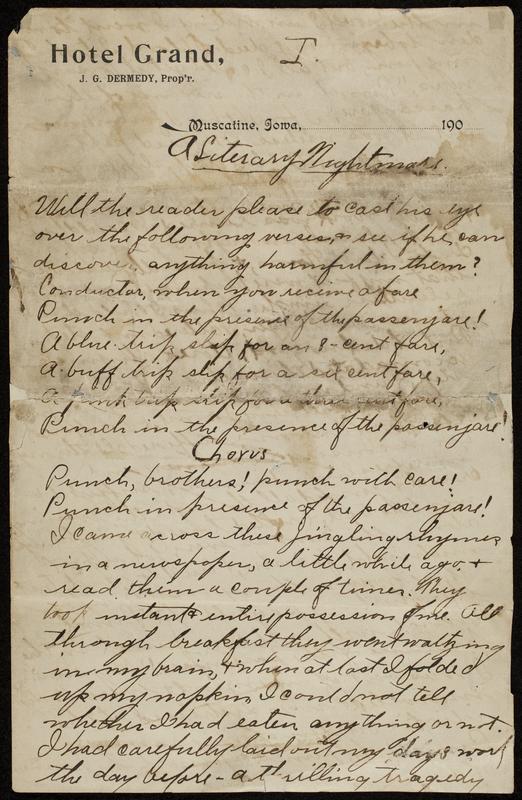 Hotel Grand,
I.
J. G. DERMEDY, Prop'r.
Muscatine, Iowa, 190
A Literary Nightmare.
Will the reader please to cast his eye
over the following verses, & see if he can
discover anything harmful in them?
Conductor, when you receive a fare
Punch in the presense of the passenjare!
A blue trip slip for an 8-cent fare,
A buff trip slip for a six cent fare,
A pink trip slip for a three cent fare,
Punch in the presence of the passenjare!
Chorus
Punch, brothers! punch with care!
Punch in presence of the passenjare!
I came across these jingling rhymes
in a newspaper, a little while ago, +
read them a couple of times. They
took instant & entire possession of me. All
through breakfast they went waltzing
in my brain, & when at last I folded
up my napkin I could not tell
whether I had eaten anything or not.
I had carefully laid out my day's work
the day before - a thrilling tragedy